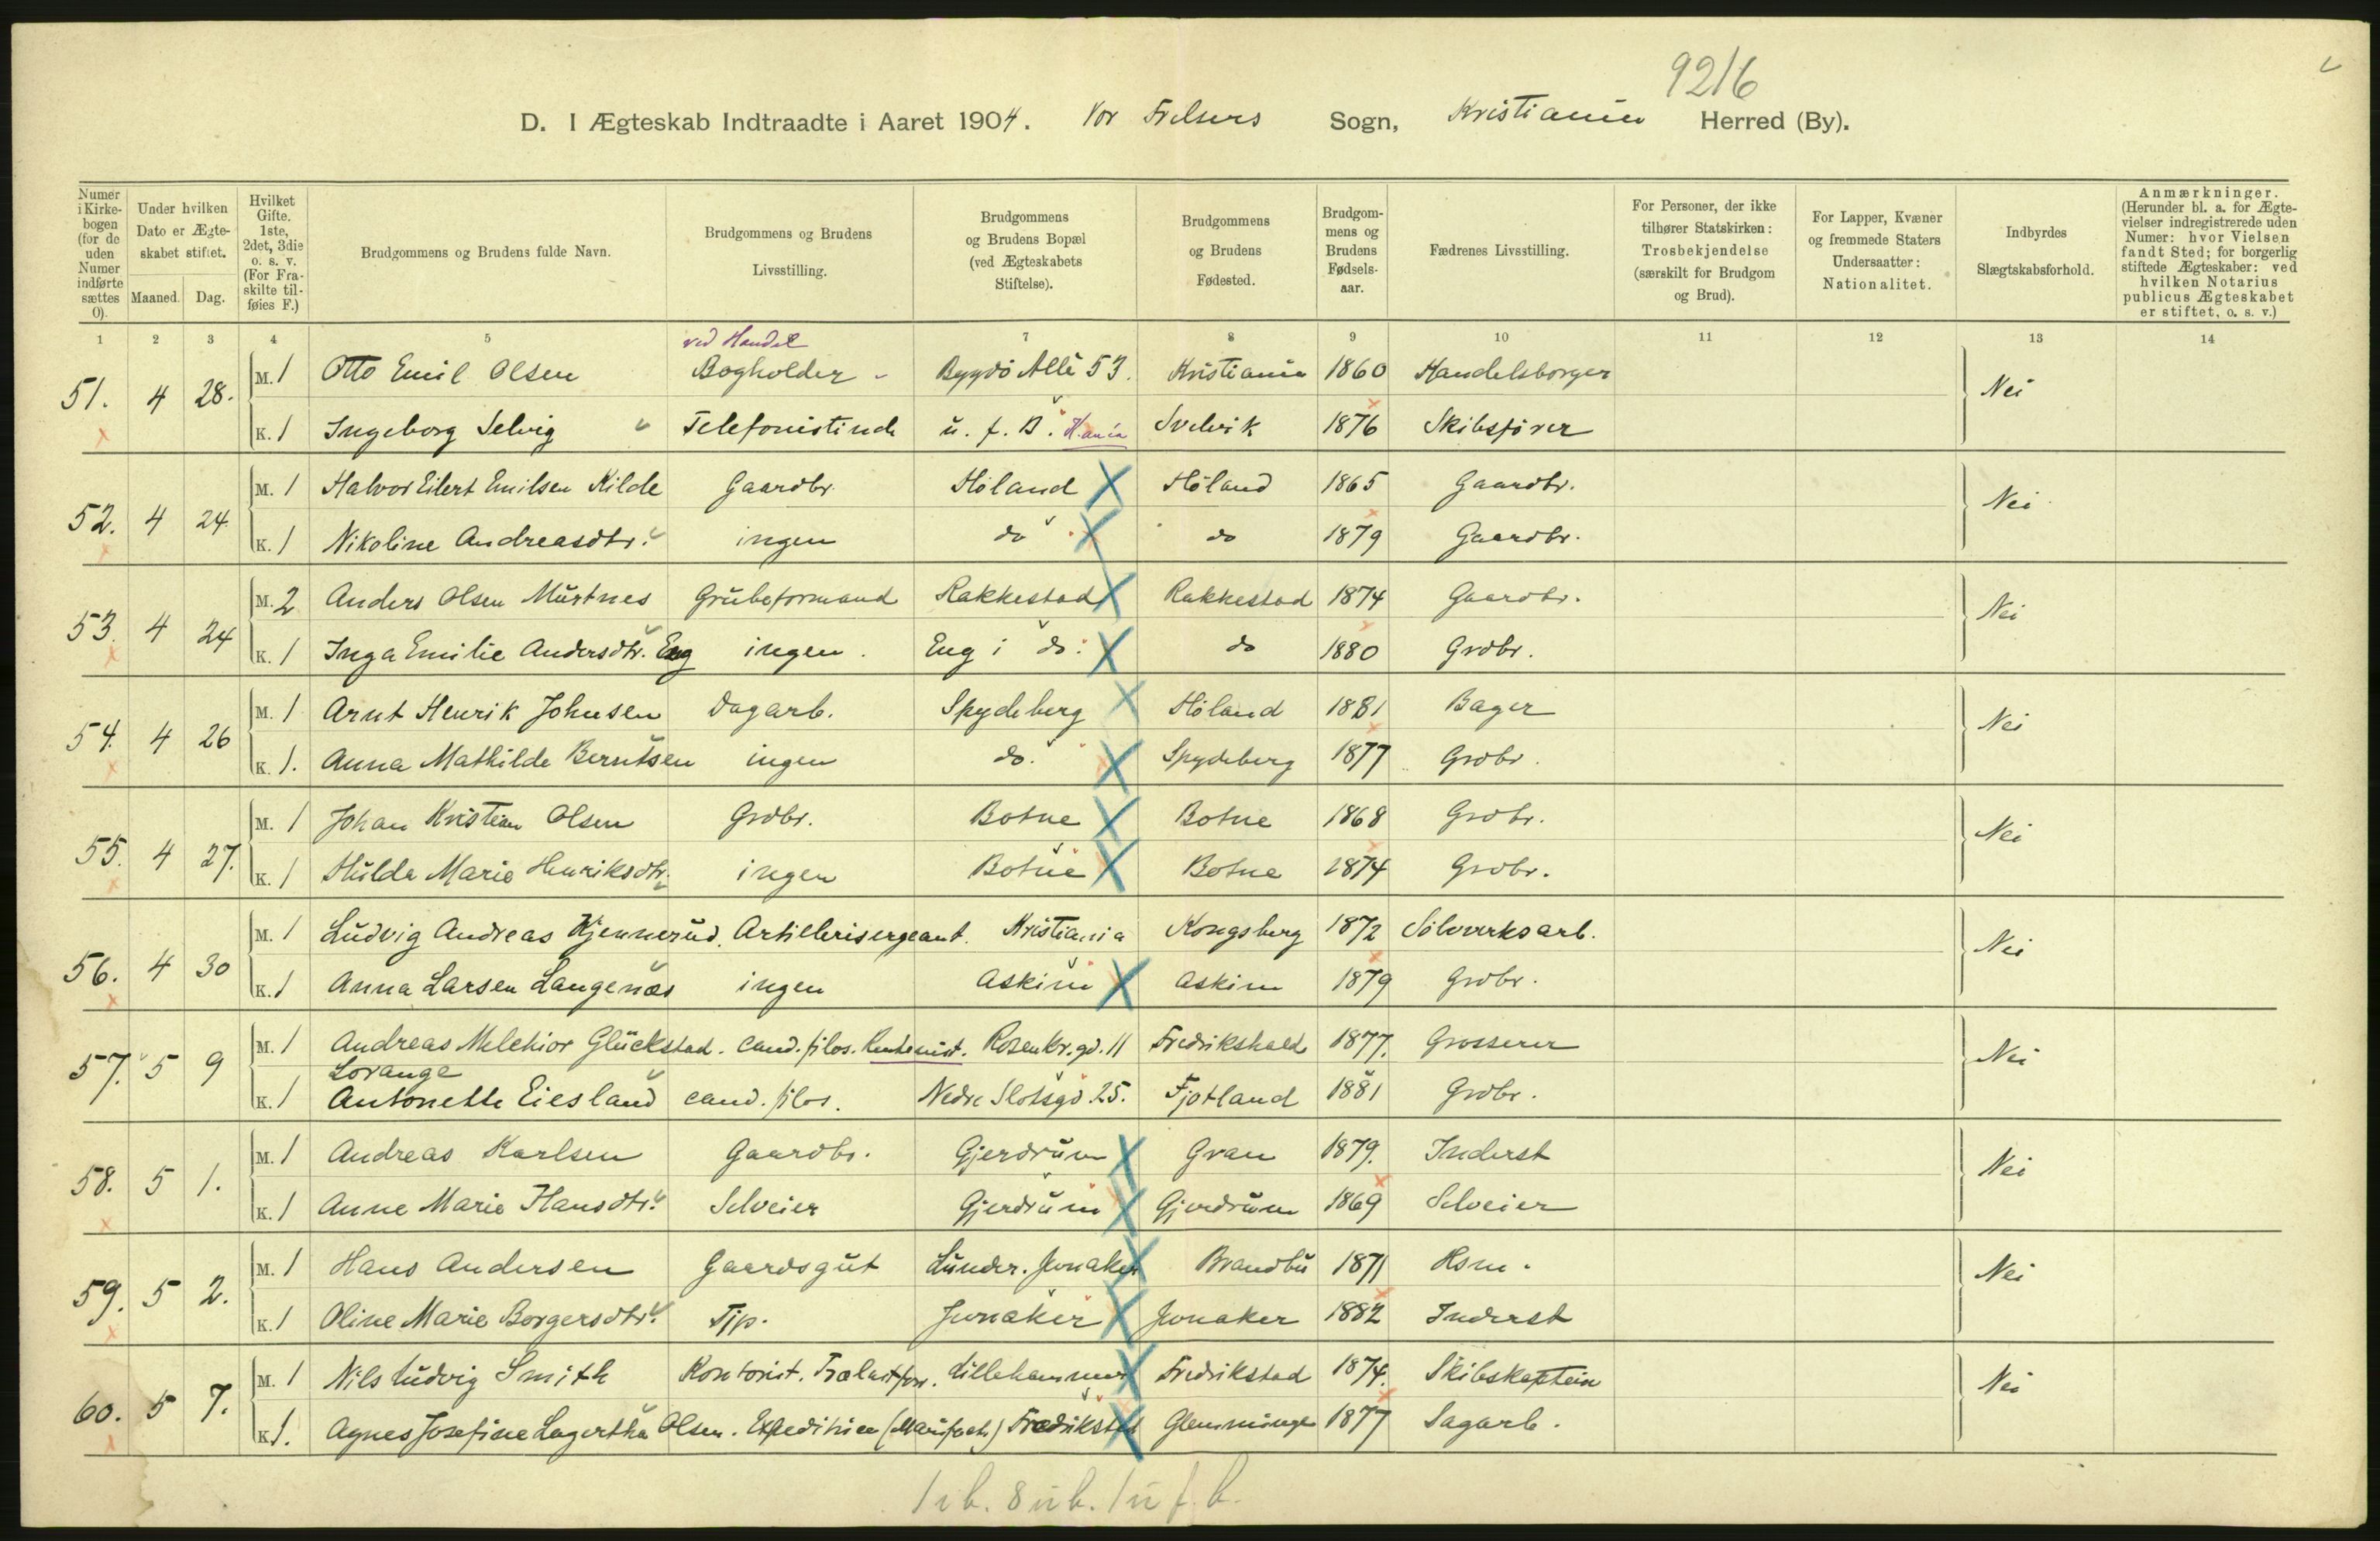 9216
D. I Ægteskab Indtraadte i Aaret 1904. Vor Frelsers Sogn, Kristiania Herred (By).
Numer i Kirkebogen (for de uden Numer indførte sættes 0).
Under hvilken Dato er Ægteskabet stiftet.
Maaned. Dag.
Hvilket Gifte. 1ste, 2det, 3die o. s. v. (For Fraskilte tilføies F.)
Brudgommens og Brudens fulde Navn.
Brudgommens og Brudens Livsstilling.
Brudgommens og Brudens Bopæl (ved Ægteskabets Stiftelse).
Brudgommens og Brudens Fødested.
Brudgommens og Brudens Fødselsaar.
Fædrenes Livsstilling.
For Personer, der ikke tilhører Statskirken: Trosbekjendelse (særskilt for Brudgom og Brud).
For Lapper, Kvæner og fremmede Staters Undersaatter: Nationalitet.
Indbyrdes Slægtskabsforhold.
Anmærkninger. (Herunder bl. a. for Ægtevielser indregistrerede uden Numer: hvor Vielsen fandt Sted; for borgerlig stiftede Ægteskaber: ved hvilken Notarius publicus Ægteskabet er stiftet, o. s. v.)
1 2 3 4 5 7 8 9 10 11 12 13 14
ved Handel
51. 4 28. M. 1 Otto Emil Olsen Bogholder Bygdö Allé 53. Kristiania 1860 Handelsborger Nei
K. 1 Ingeborg Selvig Telefonistinde u. f. B. K.ania Svelvik 1876 Skibsfører
52. 4 24. M. 1 Halvor Eilert Emilsen Kilde Gaardbr. Høland Høland 1865 Gaardbr. Nei
K. 1 Nikoline Andreasdtr. ingen do do 1879 Gaardbr.
53. 4 24 M. 2 Anders Olsen Murtnes Grubeformand Rakkestad Rakkestad 1874 Gaardbr. Nei
K. 1 Inga Emilie Andersdtr. Eng ingen. Eng i do. do 1880 Grdbr.
54. 4 26 M. 1 Arnt Henrik Johnsen Dagarb. Spydeberg Høland 1881 Bager Nei
K. 1. Anna Mathilde Berntsen ingen do. Spydeberg 1877 Grdbr.
55. 4 27. M. 1 Johan Kristian Olsen Grdbr. Botne Botne 1868 Grdbr. Nei
K. 1 Hilda Marie Henriksdtr. ingen Botne Botne 1874 Grdbr.
56. 4 30 M. 1 Ludvig Andreas Hjennerud. Artillerisergeant. Kristiania Kongsberg 1872 Sølvverksarb. Nei
K. 1 Anna Larsen Langenæs ingen Askim Askim 1879 Grdbr.
57. 5 9 M. 1 Andreas Melchior Glückstad. cand. filos. Rosenkr.gd. 11 Fredrikshald 1877. Grosserer Nei
Lorange
K. 1 Antonette Eiesland cand. filos. Nedre Slotsgd 25. Fjotland 1881 Grdbr.
58. 5 1. M. 1 Andreas Karlsen Gaardbr. Gjerdrum Gran 1879. Inderst Nei
K. 1 Anne Marie Hansdtr. Selveier Gjerdrum Gjerdrum 1869 Selveier
59. 5 2. M. 1 Hans Andersen Gaardsgut Lunder. Jevnaker Brandbu 1871 Hsm. Nei
K. 1 Oline Marie Borgersdtr. Tjp. Jevnaker Jevnaker 1882 Inderst
60. 5 7. M. 1 Nils Ludvig Smith Kontorist. Trælastforr. Lillehammer Fredrikstad 1874. Skibskaptein Nei
K. 1. Agnes Josefine Lagertha Olsen. Expeditrice (Manufact.) Fredrikstad Glemminge 1877 Sagarb.
8 u b. 1 u f. b.